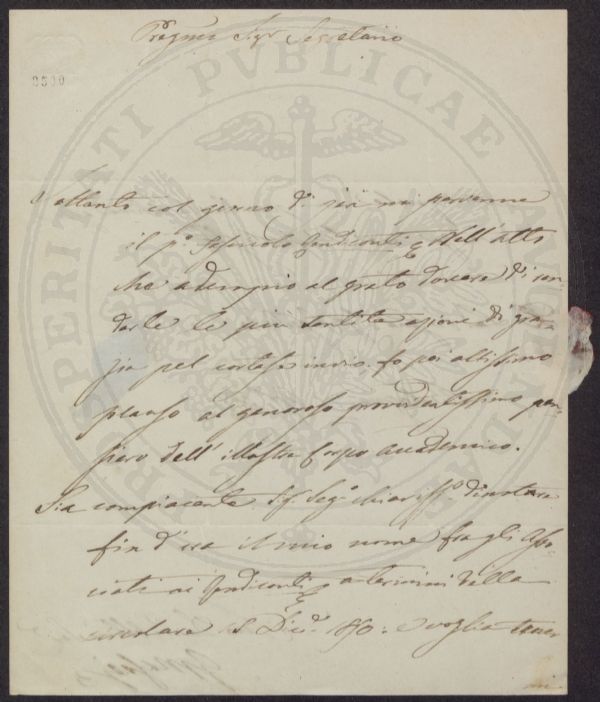 Pregmo Sigr Segretario
3500
PROSPERITATI PVBLICAE AVGENDAE
Soltanto col giorno d' jeri mi pervenne
il p.º fascicolo Rendiconti e nell'atto
che adempio al grato dovere di ren-
derle le più sentite azioni di gra-
zia pel cortese invio fo poi altissimo
plauso al generoso provvidentissimo pen-
siero dell'illustre Corpo Accademico.
Sia compiacente Sigr Segrio chiariss.º di notare
fin d'ora il mio nome fra gli Asso-
ciati ai Rendiconti a termini della
circolare 5 Dice 850: e voglia tener
mi